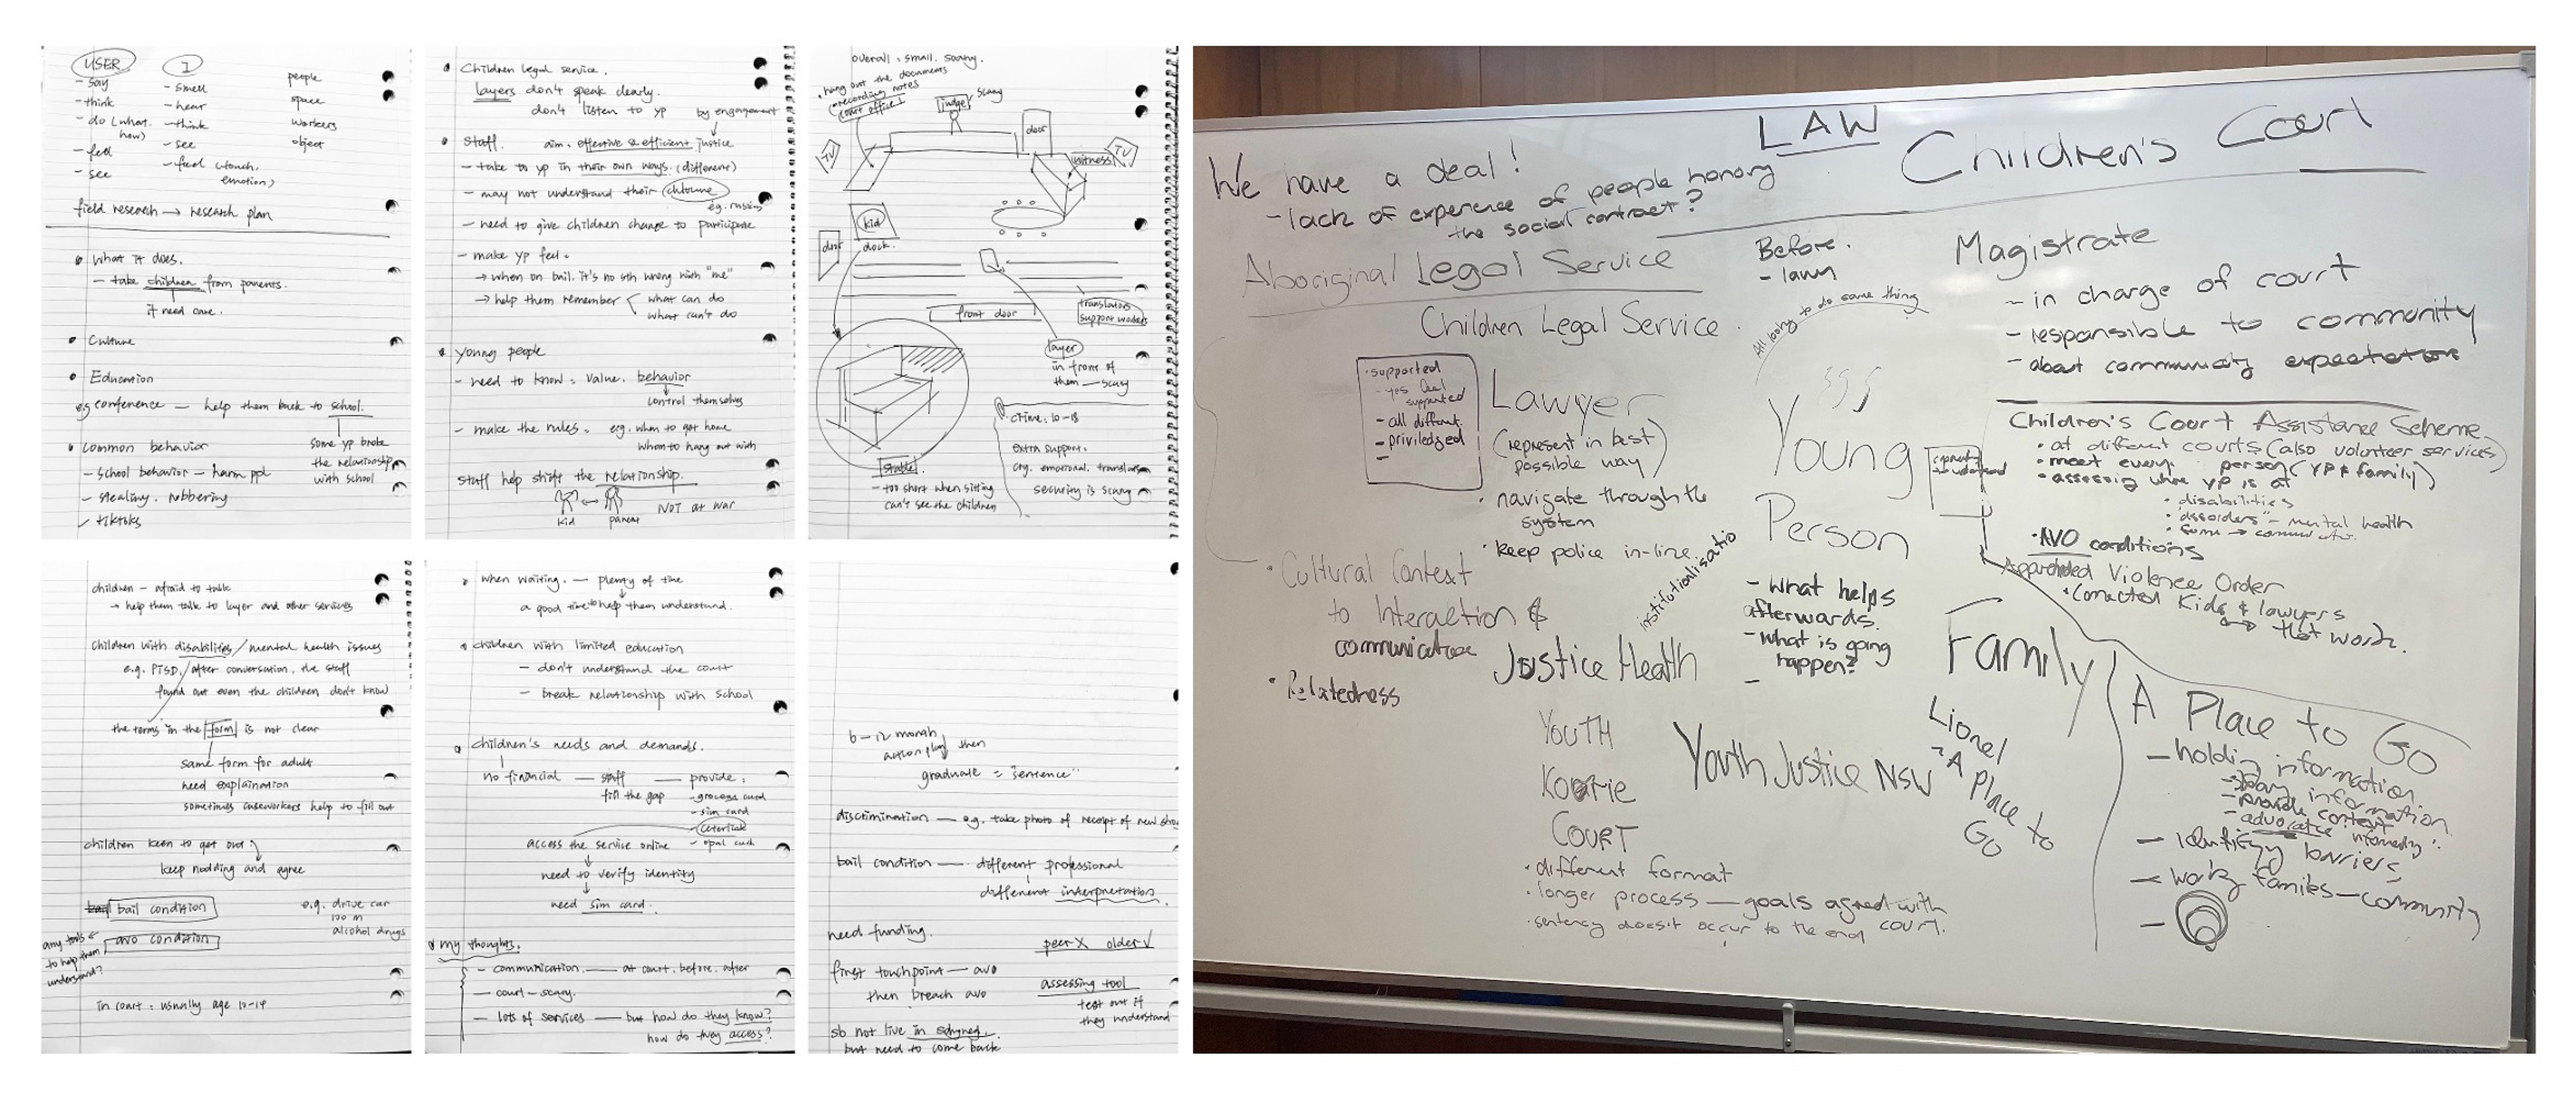 USER
- say
- think
- do (what. how)
- feel
- see
I
- smell
- hear
- think
- see
- feel (touch. emotion)
people
space
workers
object
field research → research plan
• What it does.
- take children from parents.
if need care.
• Culture
• Education
eg conference — help them back to school.
some yp broke
the relationship
with school
• common behavior
- school behavior - harm ppl
- stealing. robbering
- tiktoks
• Children legal service.
layers don't speak clearly.
don't listen to yp
by engagement
• staff. aim = effective & efficient justice
- take to yp in their own ways. (different)
- may not understand their
eg.
- need to give children change to participate
- make yp feel =
→ when on bail. it's no sth wrong with "me"
→ help them remember < what can do
what can't do
• young people
- need to know = value. behavior
control themselves
- make the rules = eg. when to get home
whom to hang out with
staff help shift the relationship.
kid parent NOT at war
overall = small. scary.
• hang out the documents
recording notes
court office
judge scary
TV
door
witness TV
kid
door dock.
front door
translators
support workers
layer
in front of
them — scary
stable.
- too short when sitting
can't see the children
crime: 10-18
extra support.
eg. emotional. translation
security is scary
children - afraid to talk
→ help them talk to layer and other services
children with disabilities / mental health issues
e.g. PTSD / after conversation, the staff
found out even the children don't know
the terms in the form is not clear
same form for adult
need explaination
sometimes caseworkers help to fill out
children keen to get out
keep nodding and agree
bail condition
e.g. drive car
100 m
alcohol drugs
avo condition
any tools
to help them
understand?
in court = usually age 10-14
• when waiting. — plenty of time
a good time to help them understand.
• children with limited education
- don't understand the court
- break relationship with school
• children's needs and demands.
no financial — staff — provide =
fill the gap - grocess card
- sim card
- opal card
access the service online
need to verify identity
need sim card.
• my thoughts.
- communication. — at court. before. after
- court - scary.
- lots of services — but how do they know?
how do they access?
6-12 month
action plan then
graduate = "sentence"
discrimination — e.g. take photo of receipt of new
bail condition — different professional
different interpretation.
need funding.
peer X older ✓
first touchpoint — avo
then breach avo
assessing tool
test out if
they understand
sb not live in
but need to come back
LAW
Children's Court
We have a deal!
- lack of experience of people honoring
the social contract?
Aboriginal Legal Service
Children Legal Service
Before.
- lawy
All trying to do same thing
Magistrate
- in charge of court
- responsible to community
- about community expectations
supported
- yes
supported
- all different
- priviledged
Lawyer
(represent in best
possible way)
• navigate through the
system
• keep police in-line.
institutionalisatio
Young
Person
- What helps
afterwards.
- What is going
happen?
Children's Court Assistance Scheme
• at different courts (also volunteer services)
• meet every person (YP & family)
• assessing where YP is at
• disabilities
• "dissorders" - mental health
• AVO conditions
Violence Order
• Connected Kids & lawyers
that work.
• Cultural Context
to Interaction &
communication
• Relatedness
Justice Health
Family
YOUTH
KOORIE
COURT
• different format
• longer process — goals agreed with
court.
• sentency doesn't occur to the end
Youth Justice NSW
Lionel
- A Place to
Go
A Place to Go
- holding information
- information
- provide context
- advocate
- Identify barriers
- working families - community